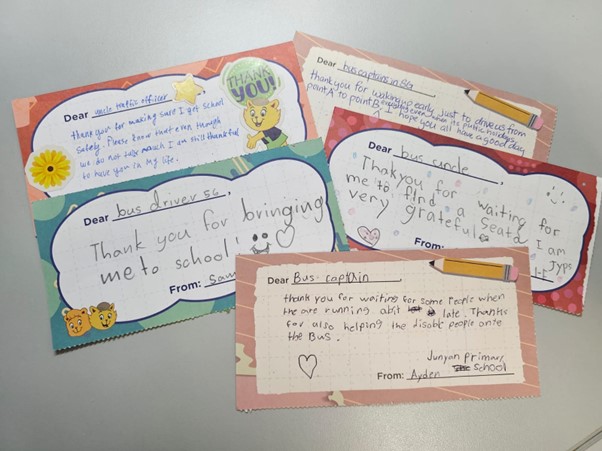 Dear uncle traffic officer
thank you for making sure I got school
safely. Please know that even though
we do not talk much I am still thankful
to have you in my life.
THANK
YOU!
Dear bus captains in SG
thank you for waking up early just to drive us from
point A to point B, I hope you all have a good day
Dear bus driver 56,
Thank you for bringing
me to school!
From: Sam
Dear bus uncle,
Thakyou for waiting for
me to find a seat I am
very grateful
From: JYPS
Dear Bus-captain,
thank you for waiting for some people when
the are running abit late. Thanks
for also helping the disable people onto
the Bus.
Junyan primary
From: Ayden School